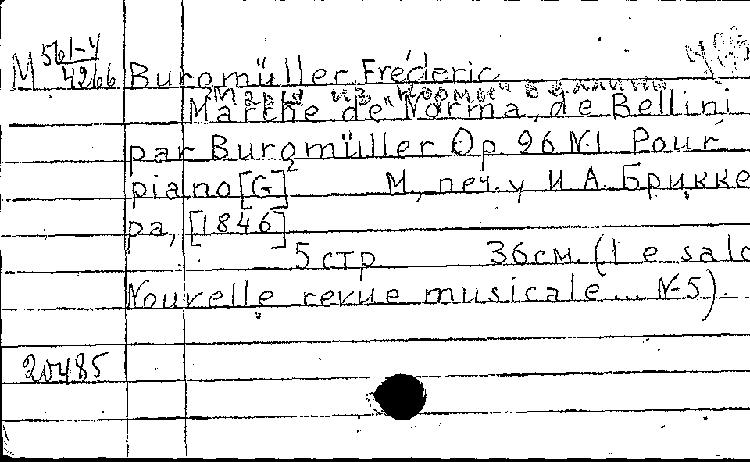 М 561-4
4266
Burgmüller Fréderic
Марш из "Нормы" Беллини
Marche de "Norma" de Bellini
par Burgmüller Op 96 N.1 Pour
piano [G] М, печ. у И А. Брикке
ра, [1846]
5 стр 36см. (Le salo
Nouvelle revue musicale ... N-5).
20485